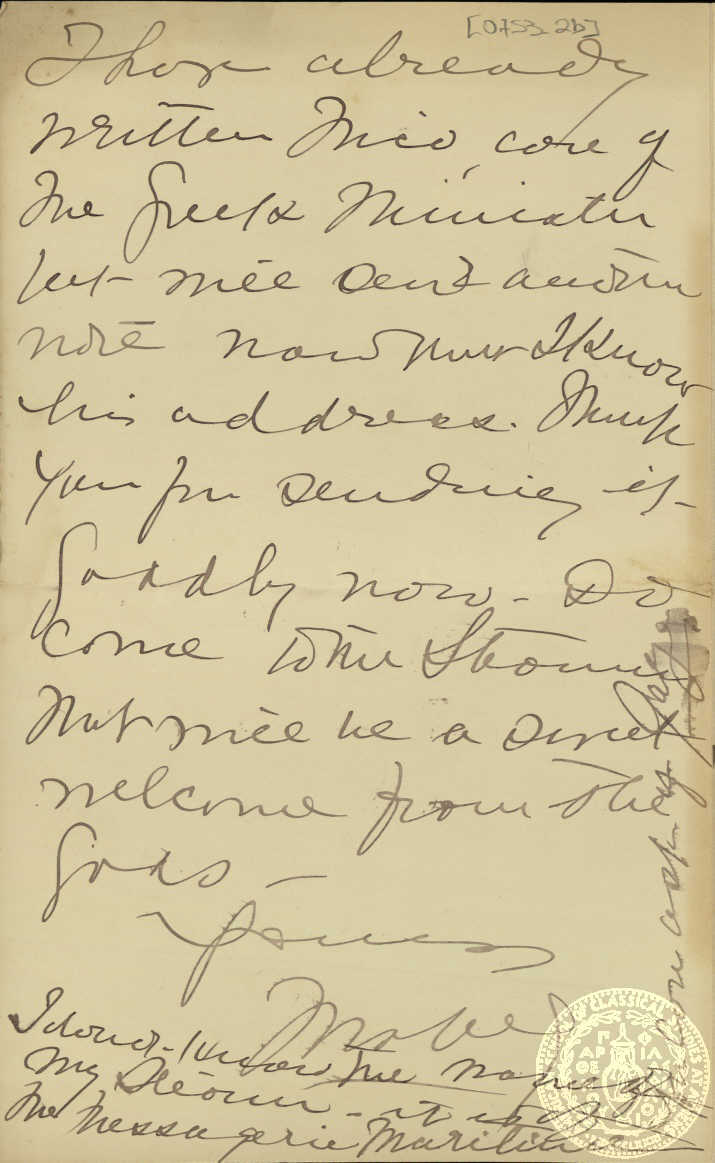 [0753_2b]
I have already
written Mico, care of
the Greek Minister
but will send another
note now that I know
his address. Thank
you for sending it -
Goodby now - Do
come to the Steamer
that will be a sweet
welcome from the
Gods -
Yours
Mabel
I don't know the name of
my Steamer - it is
the Messagerie Maritime
you can ask